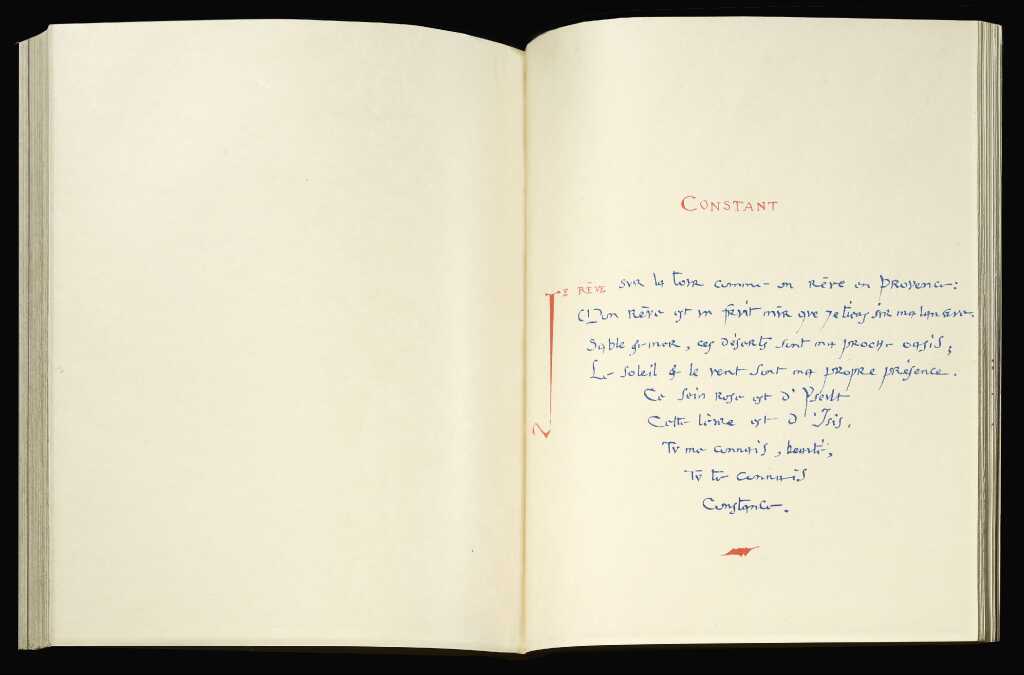 CONSTANT
JE RÊVE sur la tour comme on rêve en Provence:
Mon rêve est un fruit mûr que je tiens sur ma langue.
Sable & mer, ces déserts sont ma proche oasis;
Le soleil & le vent sont ma propre présence.
Ce sein rose est d'Yseult
Cette lèvre est d'Isis.
Tu me connais, beauté,
Tu te connais
Constance.